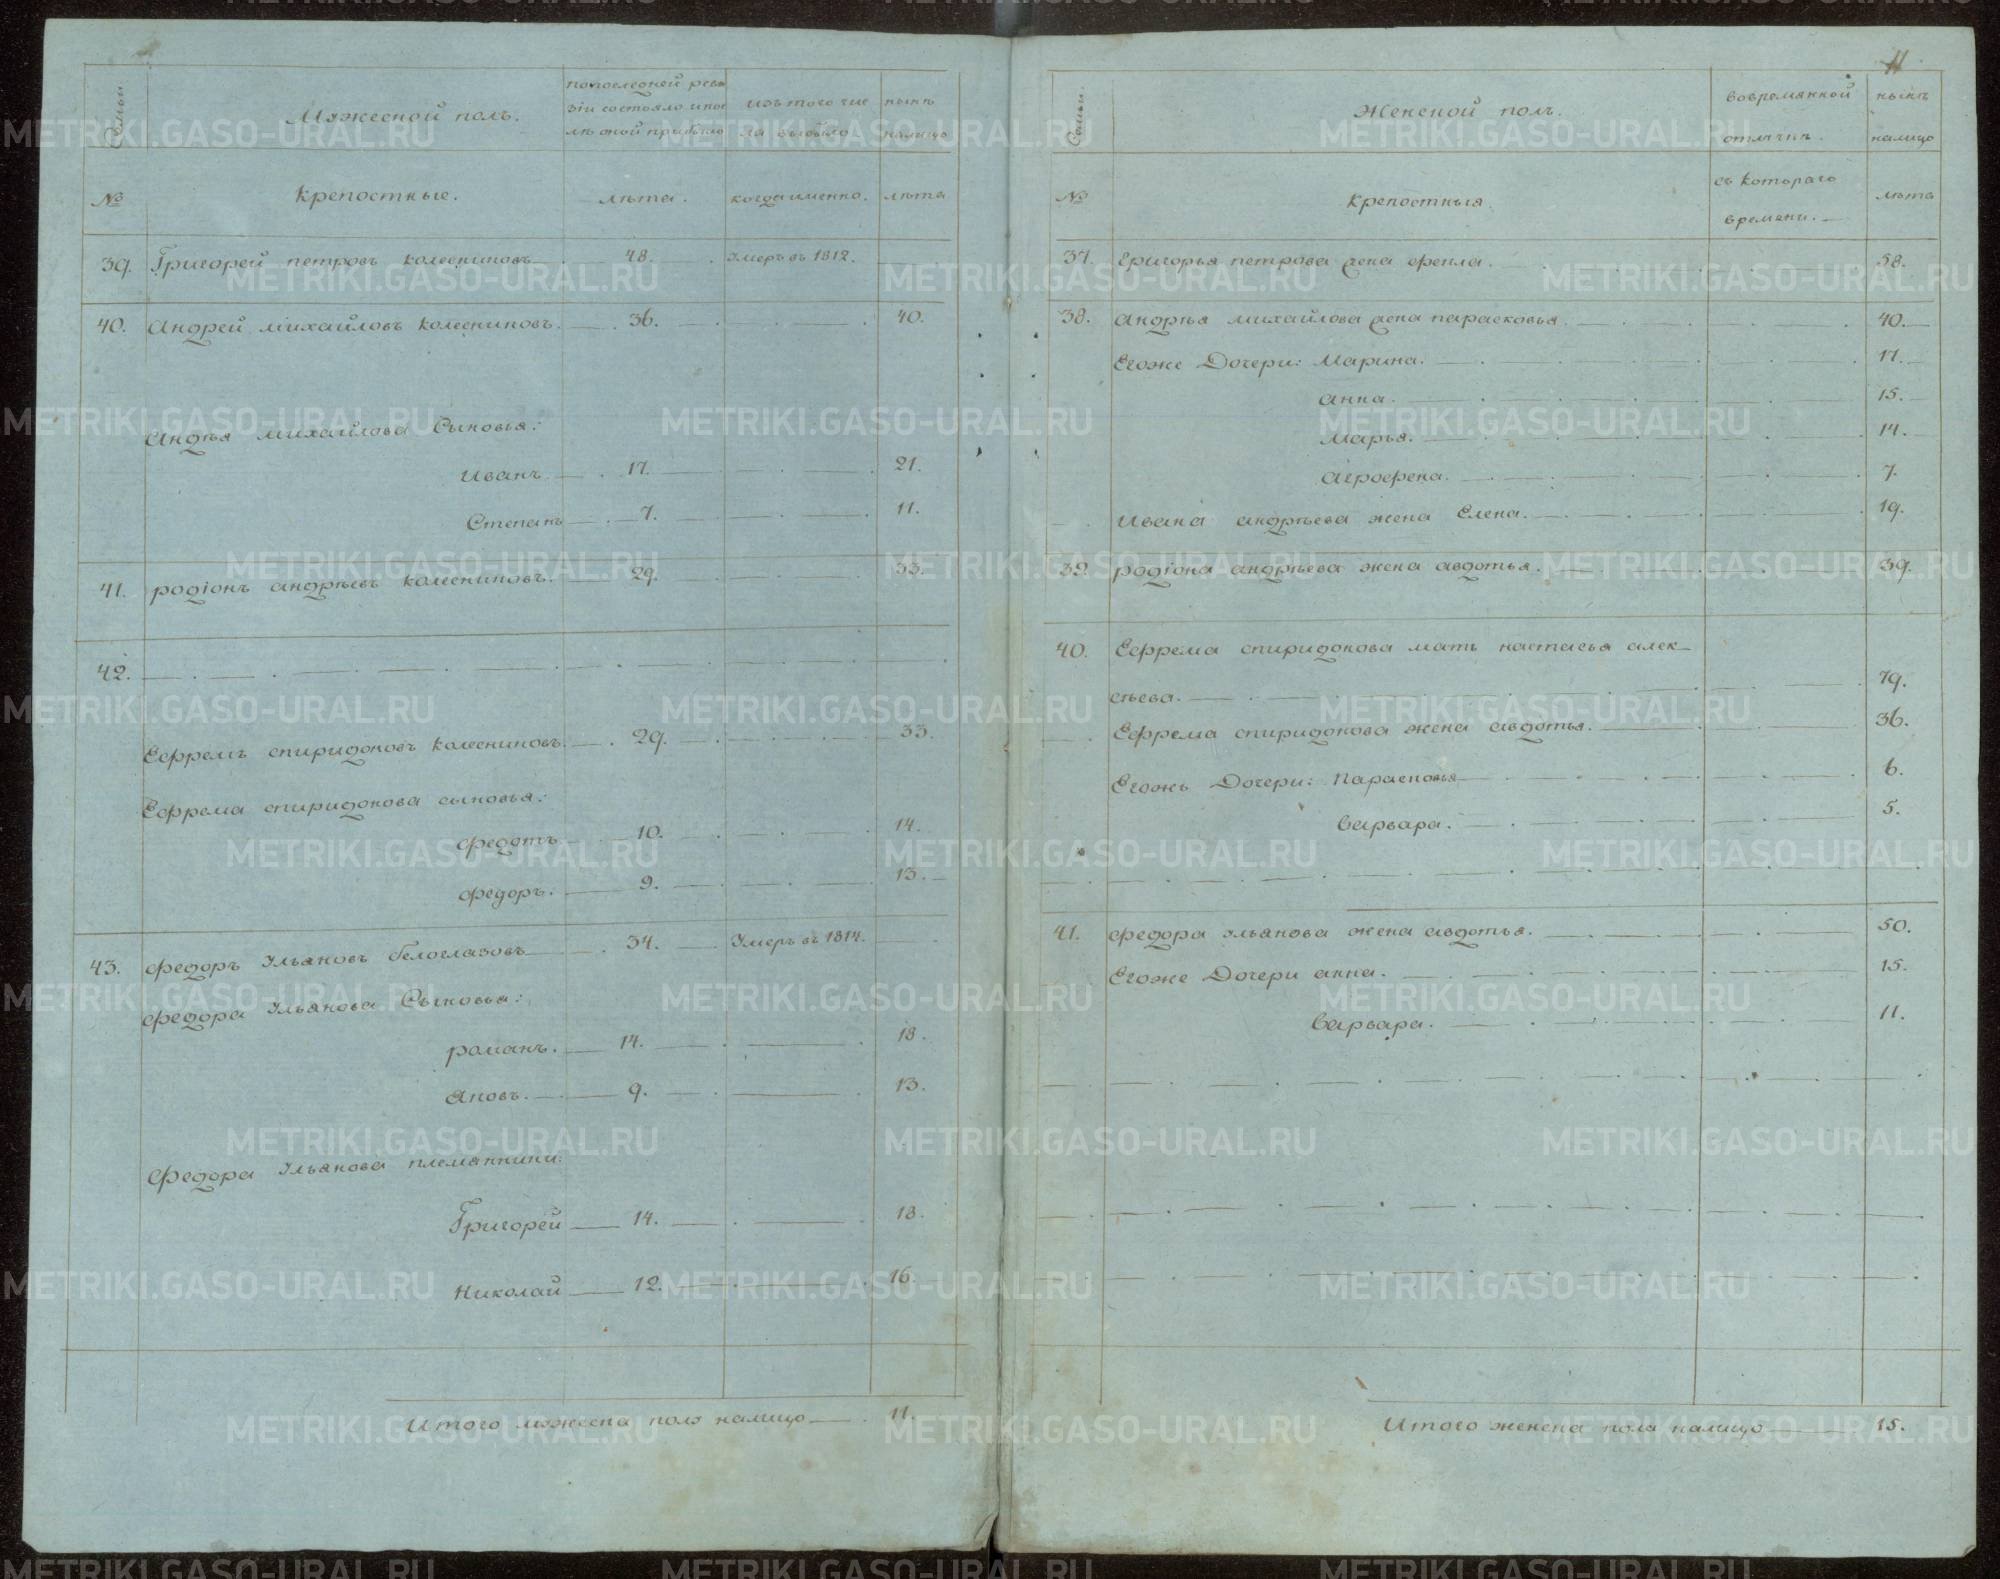 Семьи.
Мужеской полъ.
По последней реви
зіи состояло и пос
лѣ оной прибыло
изъ того чис
ла выбыло
нынѣ
налицо
№
Крепостные.
лѣта.
когда именно.
лѣта
39. Григорей петровъ колесниковъ 48. Умеръ въ 1812.
40. Андрей михайловъ колесниковъ. 36. 40.
Андрѣя михайлова Сыновья:
Иванъ 17. 21.
Степанъ 7. 11.
41. родіонъ андрѣевъ колесниковъ. 29. 33.
42.
Ефремъ спиридоновъ колесниковъ. 29. 33.
Ефрема спиридонова сыновья:
федотъ 10. 14.
федоръ. 9. 13.
43. федоръ Ульяновъ белоглазовъ 34. Умеръ въ 1814.
федора Ульянова Сыновья:
романъ. 14. 18.
Яковъ. 9. 13.
федора Ульянова племянники:
Григорей 14. 18.
Николай 12. 16.
Итого мужеска полу налицо 11.
11
Семьи.
Женской полъ.
во времянной
отлучкѣ.
нынѣ
налицо
№
Крепостныя.
съ котораго
времени.
лѣта
37. Григорья петрова жена фекла. 58.
38. Андрѣя михайлова жена парасковья. 40.
Егоже Дочери: Марина. 17.
анна. 15.
Марья. 14.
агрофена. 7.
Ивана андрѣева жена Елена. 19.
39. родіона андрѣева жена авдотья. 39.
40. Ефрема спиридонова мать настасья алек
сѣева. 79.
Ефрема спиридонова жена авдотья. 36.
Егожъ Дочери: Парасковья 6.
варвара. 5.
41. федора Ульянова жена авдотья. 50.
Егоже Дочери анна. 15.
варвара. 11.
Итого женска пола налицо 15.
METRIKI.GASO-URAL.RU